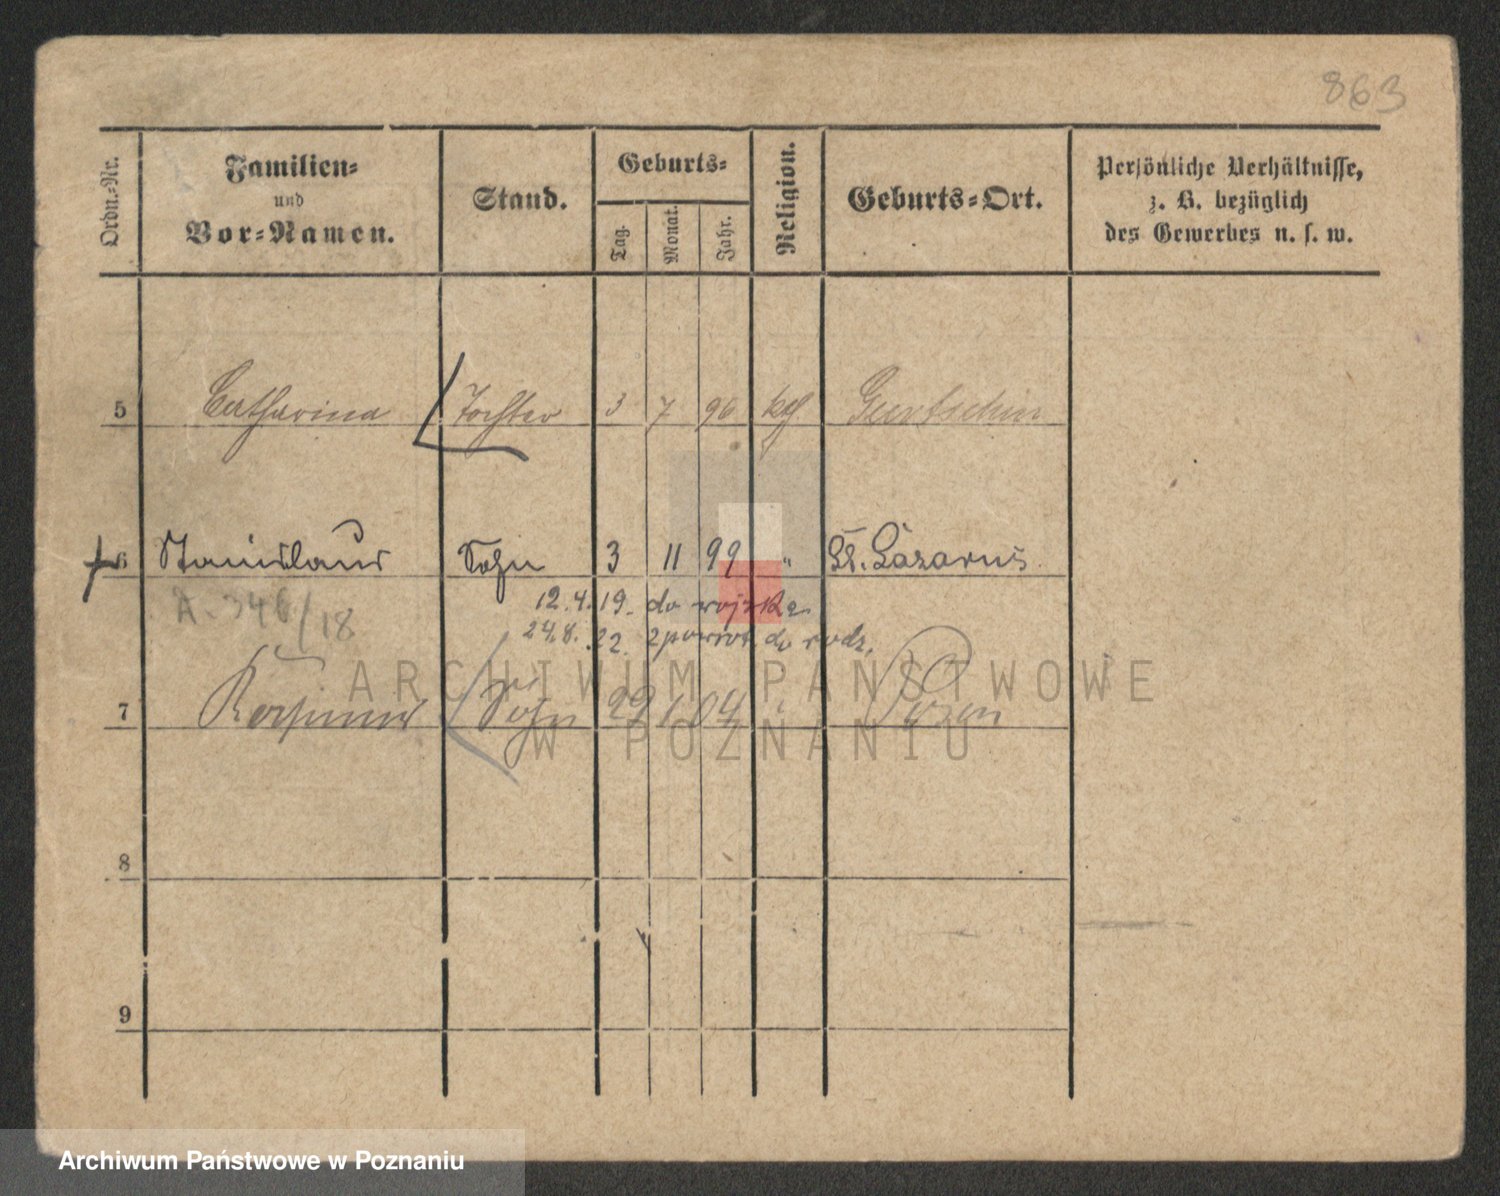 863
Ordn.-Nr.
Familien-
und
Vor-Namen.
Stand.
Geburts-
Tag.
Monat.
Jahr.
Religion.
Geburts-Ort.
Persönliche Verhältnisse,
z. B. bezüglich
des Gewerbes u. s. w.
5 Catharina Tochter 3 7 96 kth Gurtschin
6 Stanislaus Sohn 3 11 99 " St. Lazarus
A. 346/18
12.4.19. do wojska
24.8.22. zpowrot. do rodz.
7 Kasimir Sohn 22 1 04 Posen
8
9
ARCHIWUM PAŃSTWOWE
W POZNANIU
Archiwum Państwowe w Poznaniu